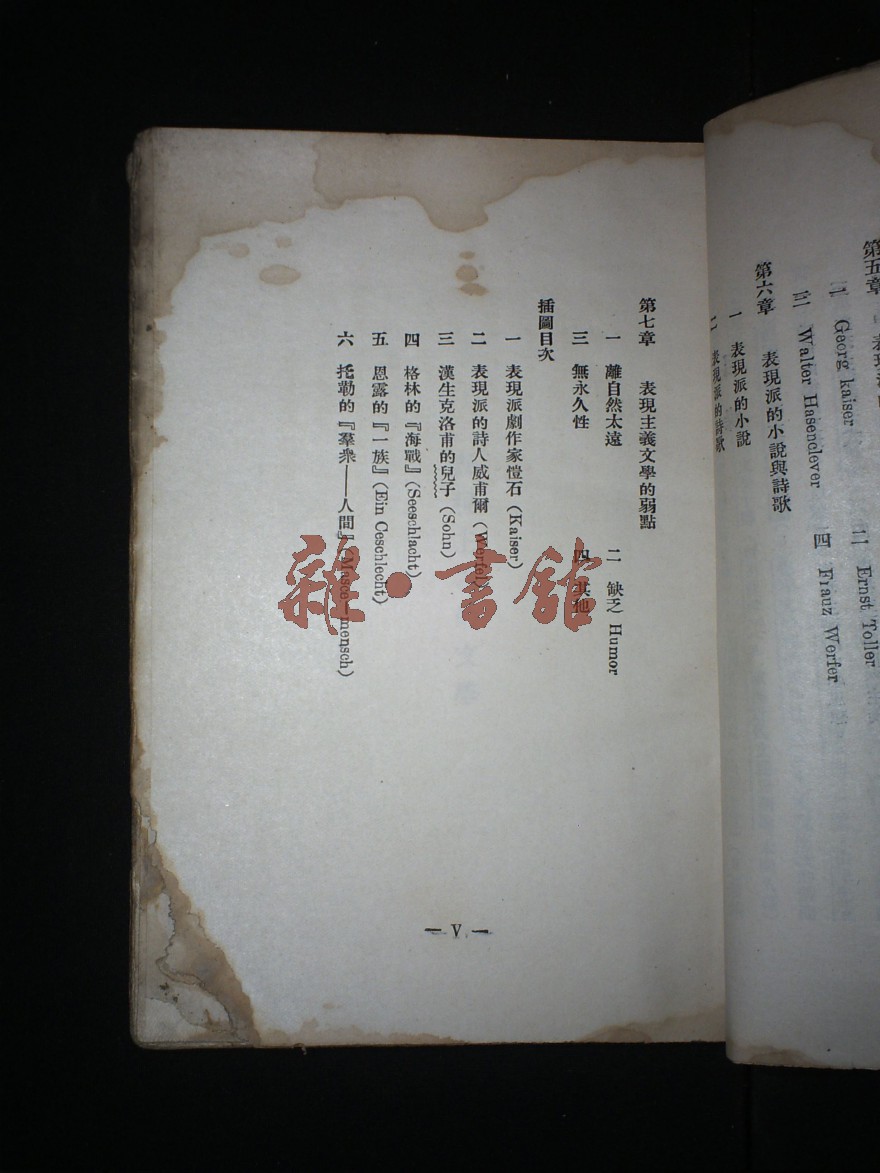 第五章
二 Ernst Toller
三 Georg kaiser
三 Walter Hasenclever
四 Frauz Werfer
第六章 表現派的小說與詩歌
一 表現派的小說
二 表現派的詩歌
第七章 表現主義文學的弱點
一 離自然太遠 二 缺乏 Humor
三 無永久性 四 其他
插圖目次
一 表現派劇作家愷石 (Kaiser)
二 表現派的詩人威甫爾 (Werfel)
三 漢生克洛甫的兒子 (Sohn)
四 格林的『海戰』(Seeschlacht)
五 恩露的『一族』(Ein Ceschlecht)
六 托勒的『羣衆——人間』(Masce-mensch)
— V —
雜·書館